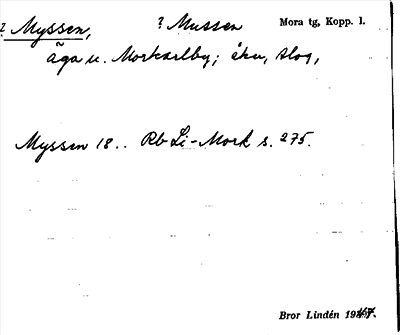 ? Myssen, ? Mussen Mora tg, Kopp. l.
äga u. Morkarlby; åker, slog,
Myssen 18.. Rb Li-Mork s. 275.
Bror Lindén 1947.